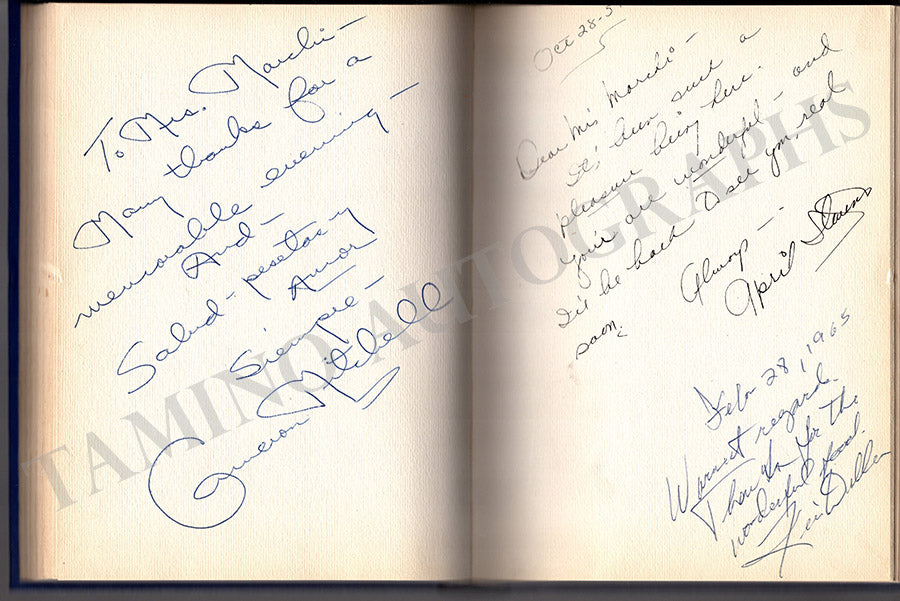 To Mrs. Marchi-
Many thanks for a
memorable evening-
And-
Salud-pesetas-y
Amor
Siempre-
Cameron Mitchell
Oct-28-5
Dear Mrs Marchi-
It's been such a
pleasure being here.
you're are wonderful-and
I'll be back to see you real
soon.
Always-
April Stevens
Febr 28, 1965
Warmest regards.
Thank You for the
wonderful food.
TAMINO AUTOGRAPHS